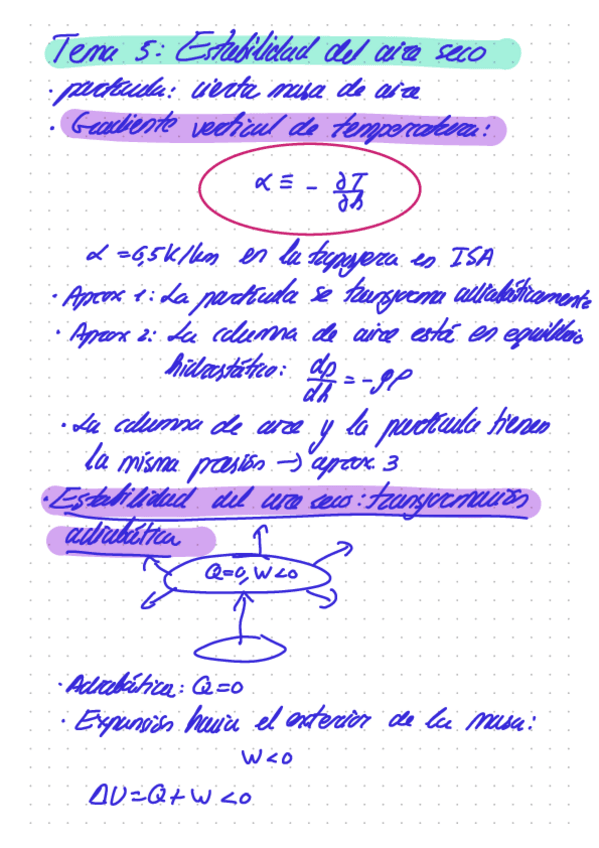 Tema 5: Estabilidad del aire seco
· partícula: cierta masa de aire
· Gradiente vertical de temperatura:
α ≡ - ∂T/∂h
α = 6,5K/km en la troposfera en ISA
· Aprox 1: La partícula se transforma adiabáticamente
· Aprox 2: La columna de aire está en equilibrio
hidrostático: dp/dh = -gρ
· La columna de aire y la partícula tienen
la misma presión → aprox. 3
· Estabilidad del aire seco: transformación
adiabática
Q=0, W<0
· Adiabática: Q=0
· Expansión hacia el exterior de la masa:
W<0
ΔU=Q+W<0